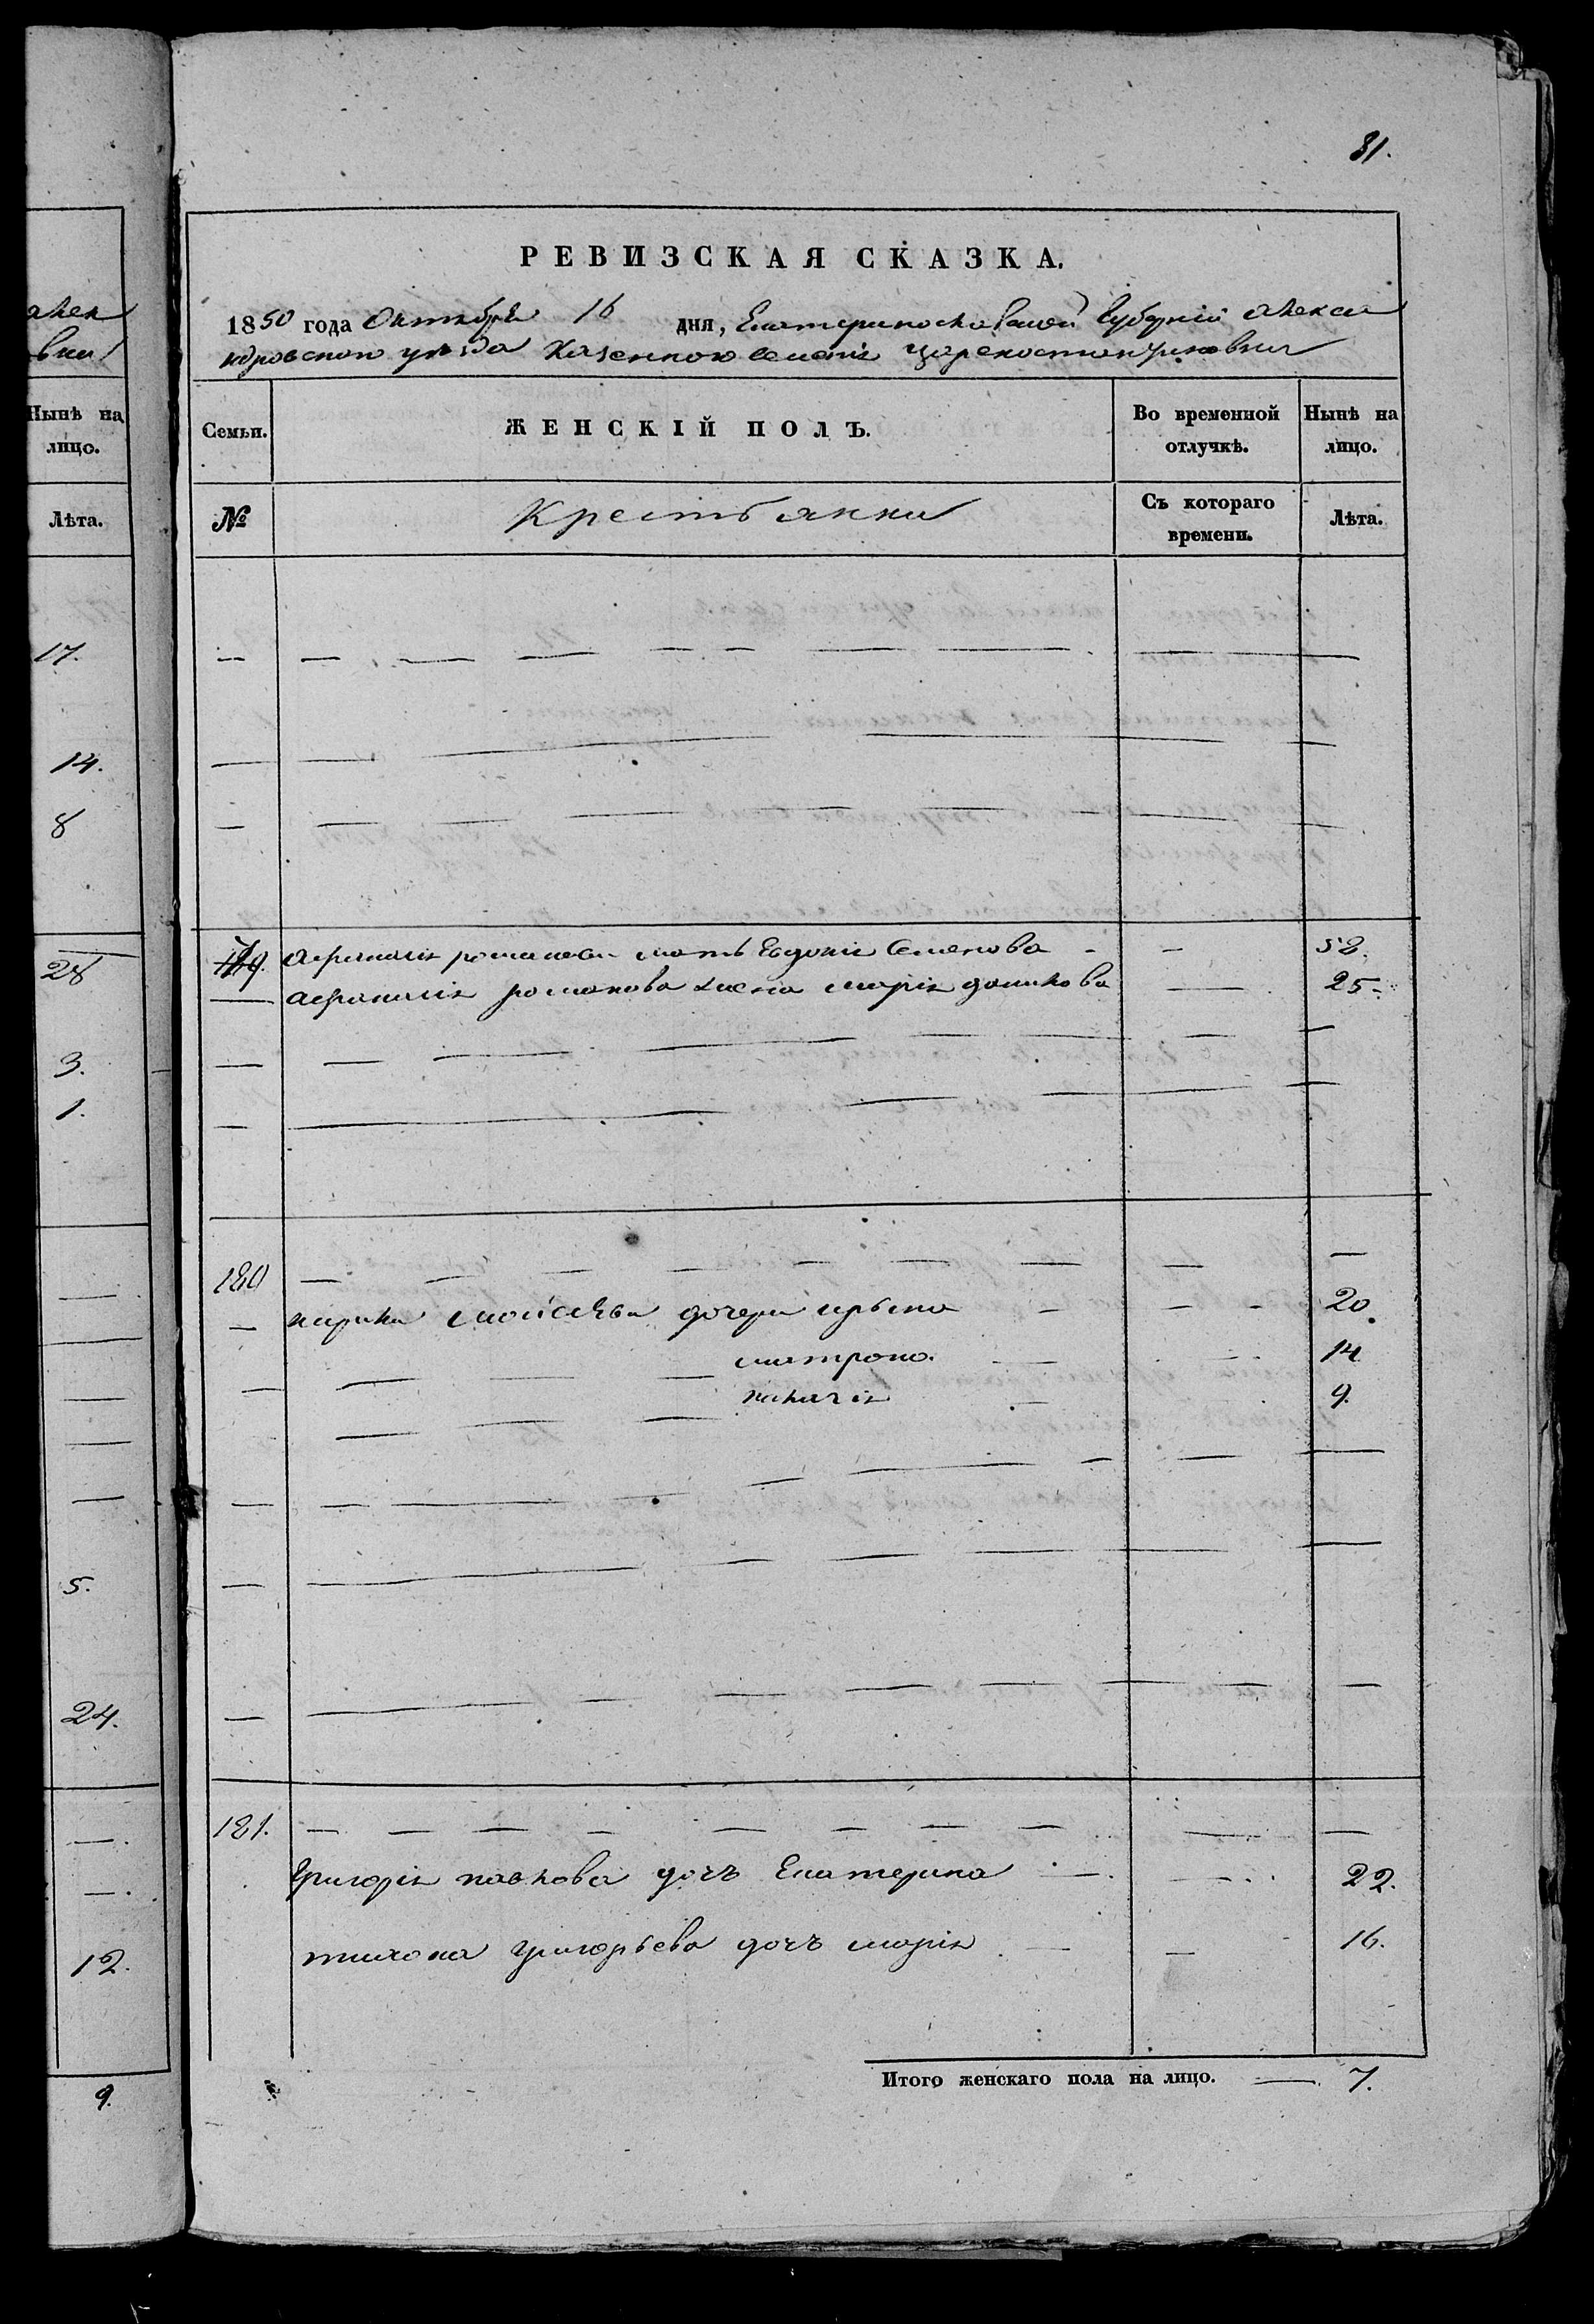 алек
вки
Нынѣ на
лицо.
Лѣта.
17.
14.
8
28
3.
1.
5.
24.
12.
9.
81.
РЕВИЗСКАЯ СКАЗКА.
1850 года Октября 16 дня, Екатеринославской Губерніи алекса
ндровского уезда Казенного селенія Цареконстантиновки
Семьи.
ЖЕНСКІЙ ПОЛЪ.
Во временной
отлучкѣ.
Нынѣ на
лицо.
№
Крестьянки
Съ котораго
времени.
Лѣта.
179. афанасія романова мать Евдокія Семенова - - 58.
— афанасія романова жена марія — 25.
180 — — — — — — — — —
— моисѣева дочери - - - 20.
матрона. — — 14
— — — — 9.
181. — — — — — — — — — —
Григорія павлова дочь Екатерина — — 22.
тихона григорьева дочь марія — — 16.
Итого женскаго пола на лицо. — 7.